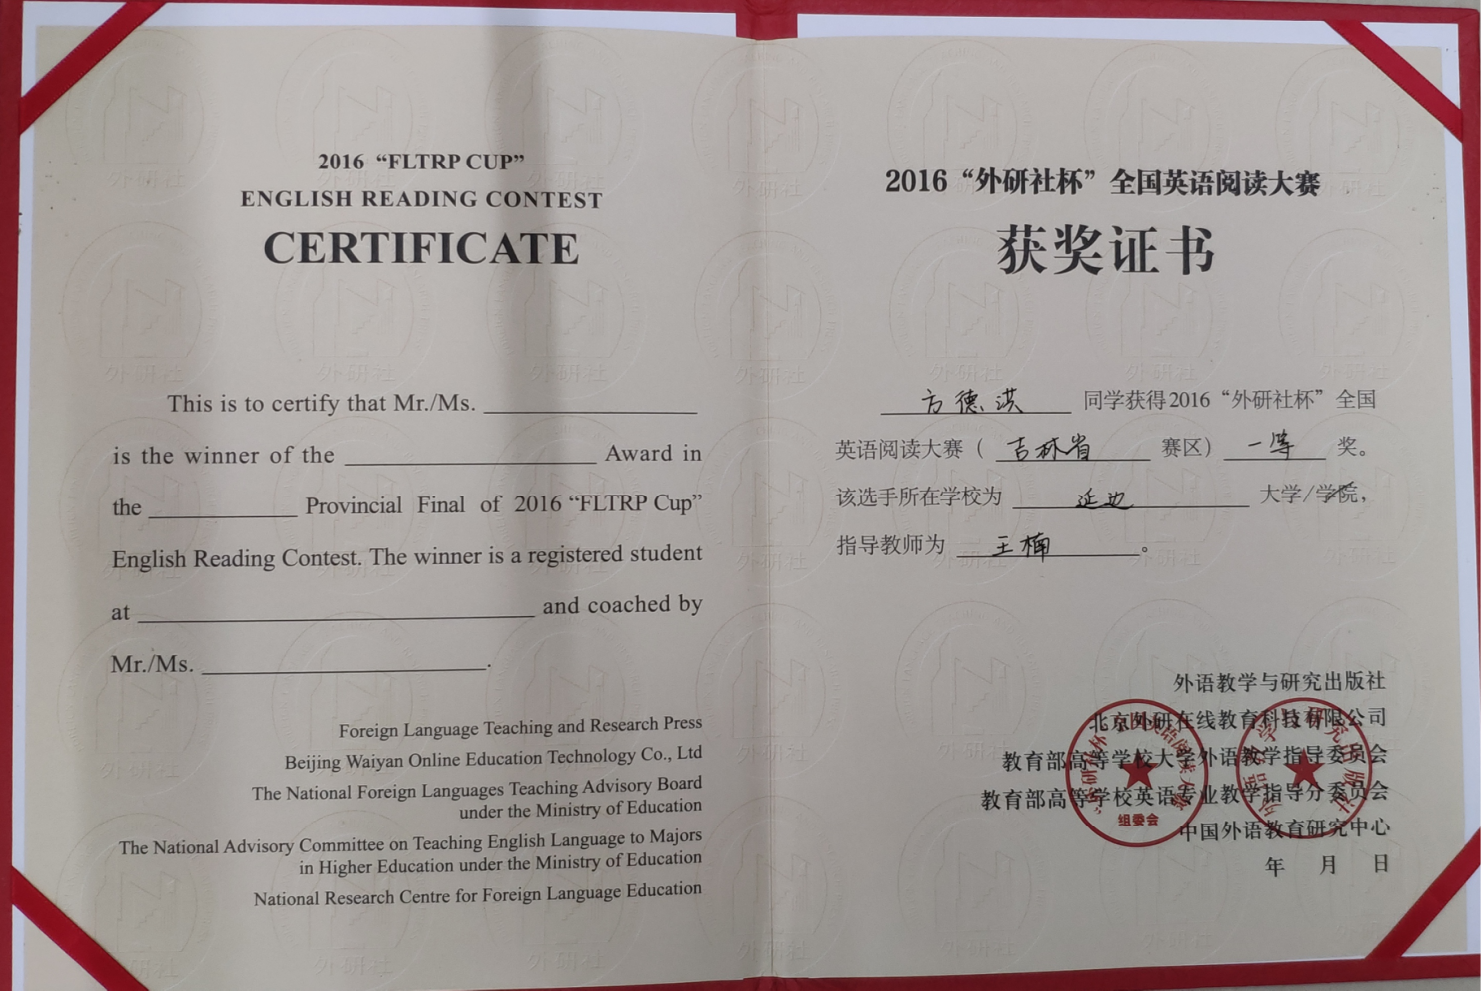 2016 “FLTRP CUP”
ENGLISH READING CONTEST
CERTIFICATE
This is to certify that Mr./Ms.
is the winner of the Award in
the Provincial Final of 2016 “FLTRP Cup”
English Reading Contest. The winner is a registered student
at and coached by
Mr./Ms. .
Foreign Language Teaching and Research Press
Beijing Waiyan Online Education Technology Co., Ltd
The National Foreign Languages Teaching Advisory Board
under the Ministry of Education
The National Advisory Committee on Teaching English Language to Majors
in Higher Education under the Ministry of Education
National Research Centre for Foreign Language Education
2016“外研社杯”全国英语阅读大赛
获奖证书
方德洪 同学获得2016“外研社杯”全国
英语阅读大赛（吉林省 赛区）一等 奖。
该选手所在学校为 延边 大学/学院，
指导教师为 王楠 。
外语教学与研究出版社
北京外研在线教育科技有限公司
教育部高等学校大学外语教学指导委员会
教育部高等学校英语专业教学指导分委员会
中国外语教育研究中心
年 月 日
组委会
外研社